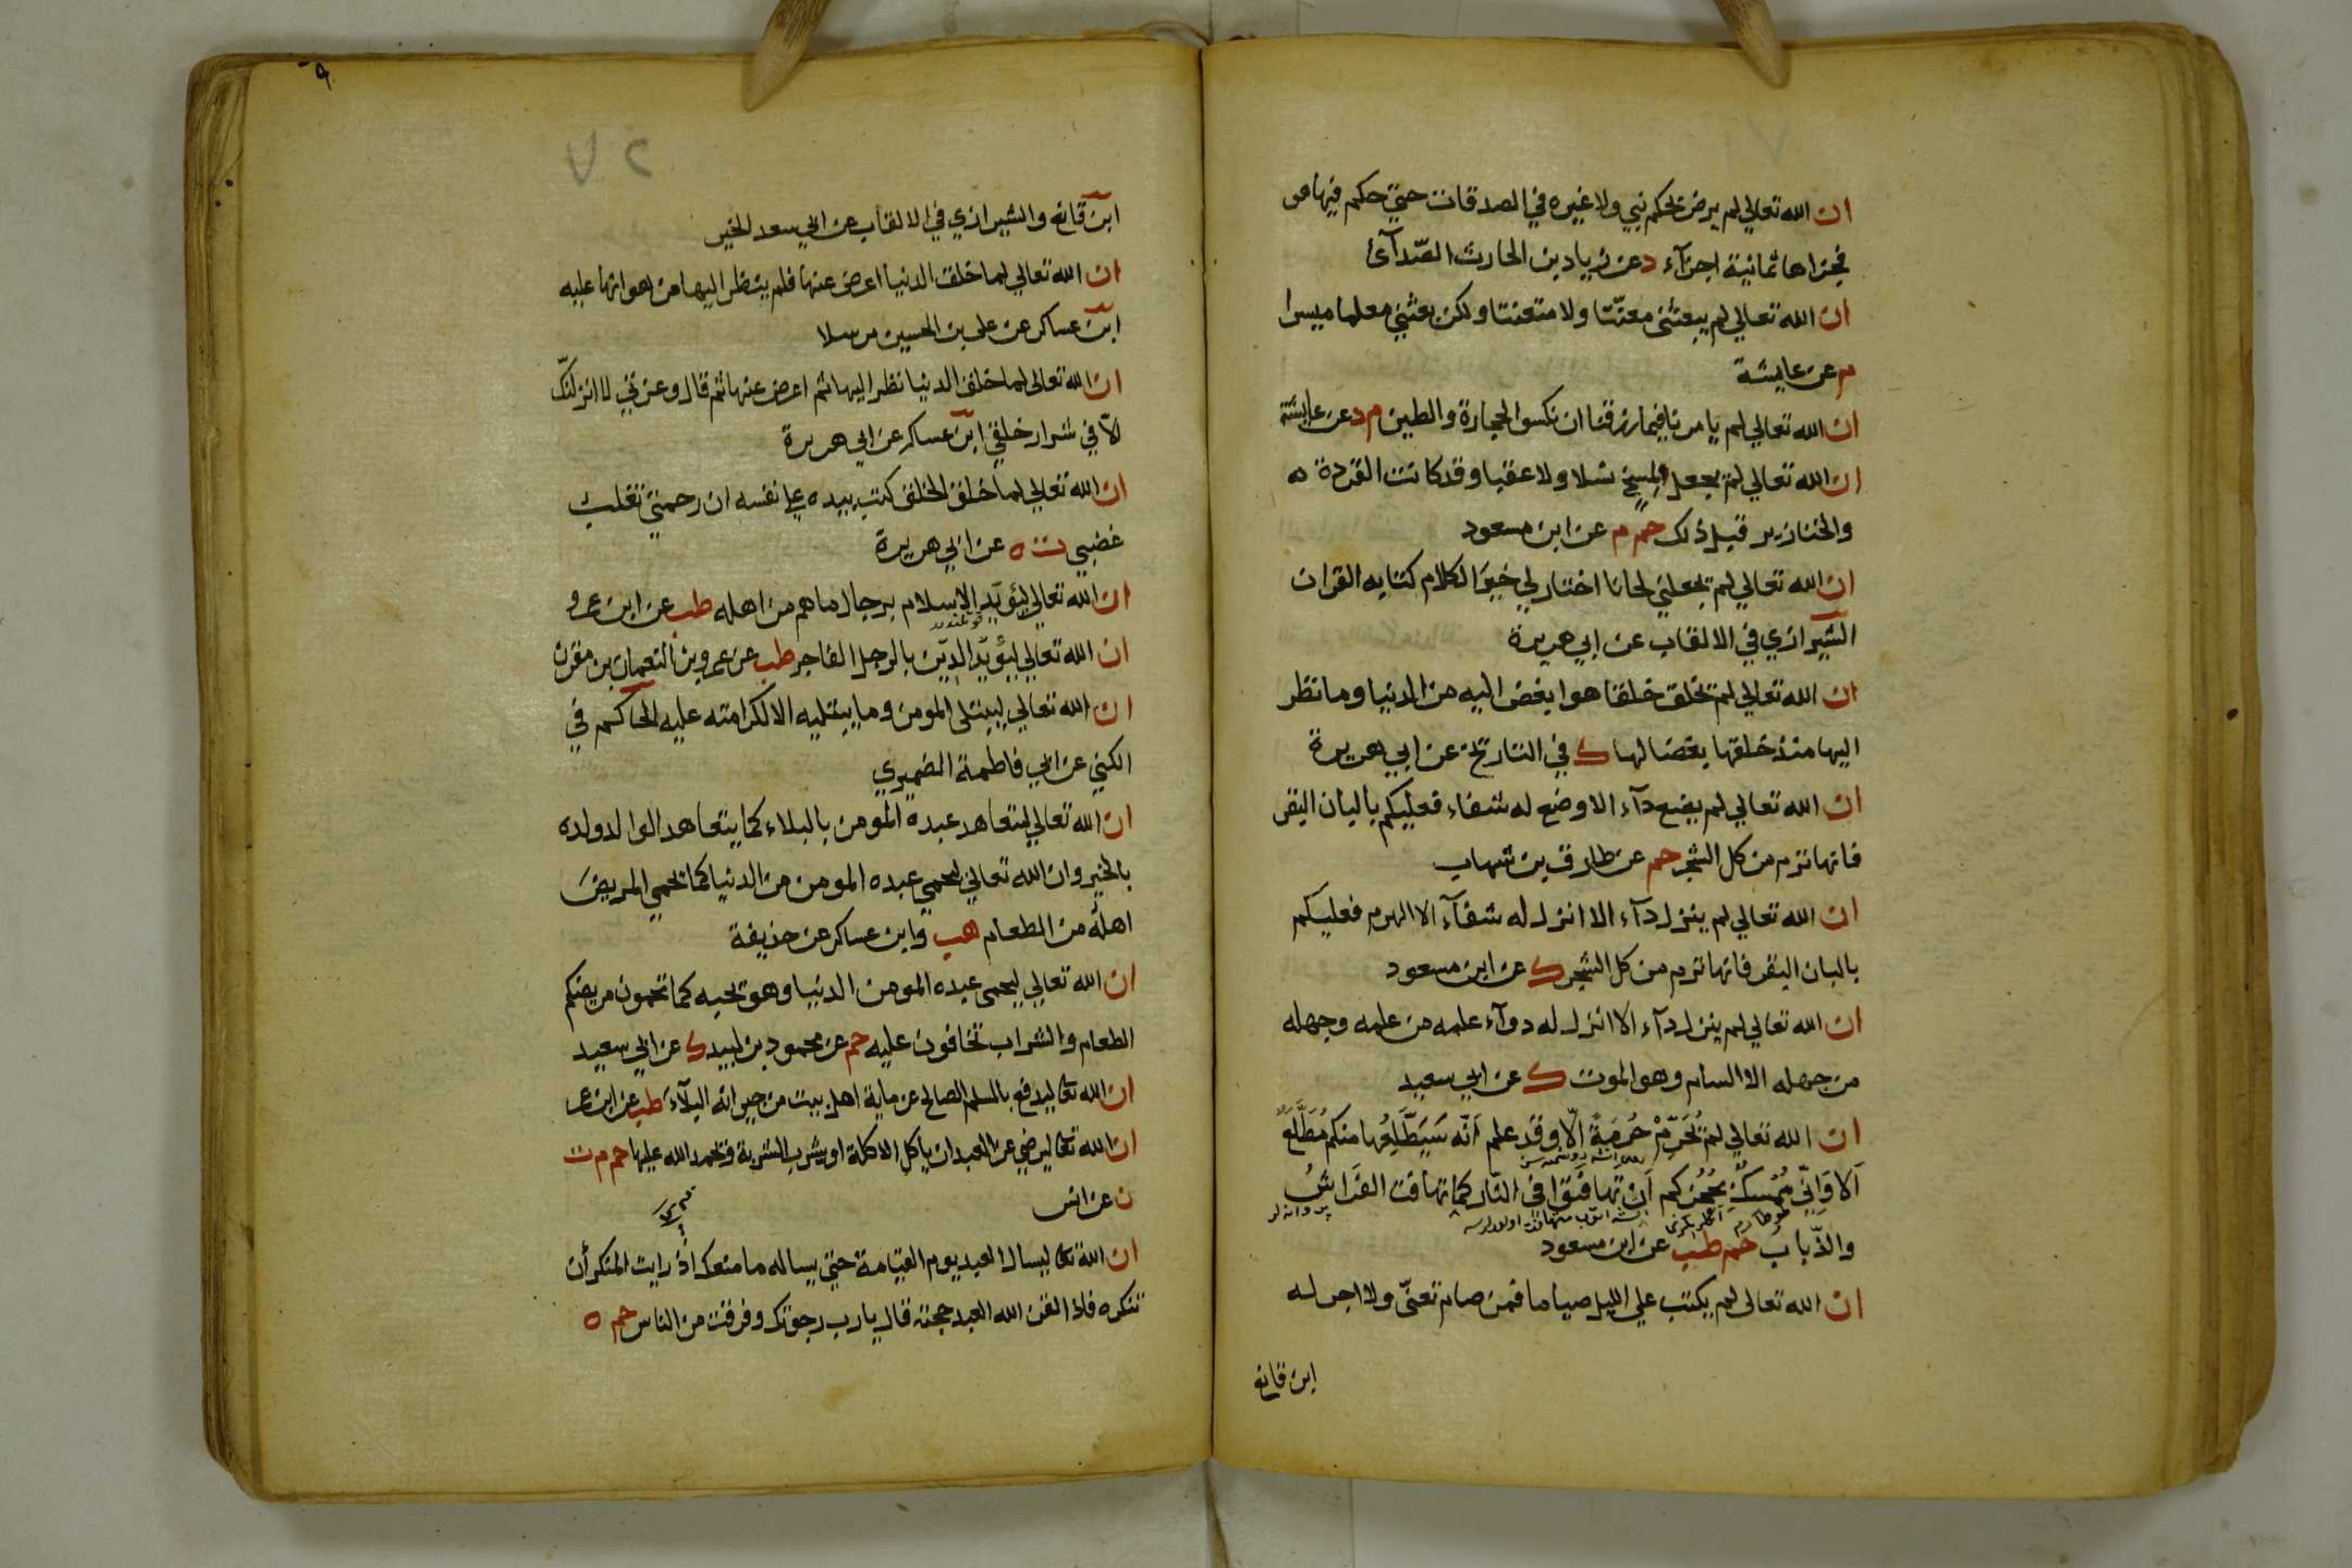 ان الله تعالي لم يرض بحكم نبي ولا غيره في الصدقات حتي حكم فيها هو
فجزاها ثمانية اجزآء د عن زياد بن الحارث الصّدآئ
ان الله تعالي لم يبعثني معنّتا ولا متعنتا ولكن بعثني معلما ميسرا
م عن عايشة
ان الله تعالي لم يامرنا فيما رزقنا ان نكسو الحجارة والطين م د عن عايشة
ان الله تعالي لم يجعل لمسخ نسلا ولا عقبا وقد كانت القردة
والخنازير قبل ذلك حم م عن ابن مسعود
ان الله تعالي لم يجعلني لحانا اختار لي خير الكلام كتابه القران
الشيرازي في الالقاب عن ابي هريرة
ان الله تعالي لم يخلق خلقا هو ابغض اليه من الدنيا وما نظر
اليها منذ خلقها بغضا لها ك في التاريخ عن ابي هريرة
ان الله تعالي لم يضع دآء الا وضع له شفاء فعليكم بالبان البقر
فانها ترم من كل الشجر حم عن طارق بن شهاب
ان الله تعالي لم ينزل دآء الا انزل له شفآء الا الهرم فعليكم
بالبان البقر فانها ترم من كل الشجر ك عن ابن مسعود
ان الله تعالي لم ينزل دآء الا انزل له دوآء علمه من علمه وجهله
من جهله الا السام وهو الموت ك عن ابي سعيد
ان الله تعالي لم يُحَرِّمْ حُرمَةً الّا وقد علم اَنّه سَيَطَّلِعُها منكم مُطَّلَعٌ
اَلا وَاِنّي مُمْسِكٌ بحُجَزكم اَن تهافتوا في النّار كما تهافت الفَرَاشُ
پروانه لر
والذّباب حم طب عن ابن مسعود
ان الله تعالي لم يكتب علي الليل صياما فمن صام تعنّي ولا اجر له
ابن قانع
٩
٢٧
ابن قانع والشيرازي في الالقاب عن ابي سعد الخير
ان الله تعالي لما خلق الدنيا اعرض عنها فلم ينظر اليها من هوانها عليه
ابن عساكر عن علي بن الحسين مرسلا
ان الله تعالي لما خلق الدنيا نظر اليها ثم اعرض عنها ثم قال وعزتي لا انزلنّك
الّا في شرار خلقي ابن عساكر عن ابي هريرة
ان الله تعالي لما خلق الخلق كتب بيده علي نفسه ان رحمتي تغلب
غضبي ت ه عن ابي هريرة
ان الله تعالي ليؤيّد الاسلام برجال ما هم من اهله طب عن ابن عمرو
ان الله تعالي ليؤيّد الدّين بالرجل الفاجر طب عن عمرو بن النعمان بن مقرن
ان الله تعالي ليبتلي المومن وما يبتليه الا لكرامته عليه الحاكم في
الكني عن ابي فاطمة الضميري
ان الله تعالي ليتعاهد عبده المومن بالبلاء كما يتعاهد الوالد ولده
بالخير وان الله تعالي ليحمي عبده المومن من الدنيا كما يحمي المريضَ
اهلُه من الطعام هب وابن عساكر عن حذيفة
ان الله تعالي ليحمي عبده المومن الدنيا وهو يحبه كما تحمون مريضكم
الطعام والشراب تخافون عليه حم عن محمود بن لبيد ك عن ابي سعيد
ان الله تعا ليدفع بالمسلم الصالح عن ماية اهل بيت من جيرانه البلآءَ طب عن ابن عمر
ان الله تعا ليرضي عن العبد ان ياكل الاكلة او يشرب الشربة فيحمد الله عليها حم م ت
ن عن انس
ان الله تعا ليسال العبد يوم القيامة حتي يساله ما منعك اذ رايت المنكر أن
تنكره فاذا لقن الله العبد حجته قال يا رب رجوتك وفرقت من الناس حم ه